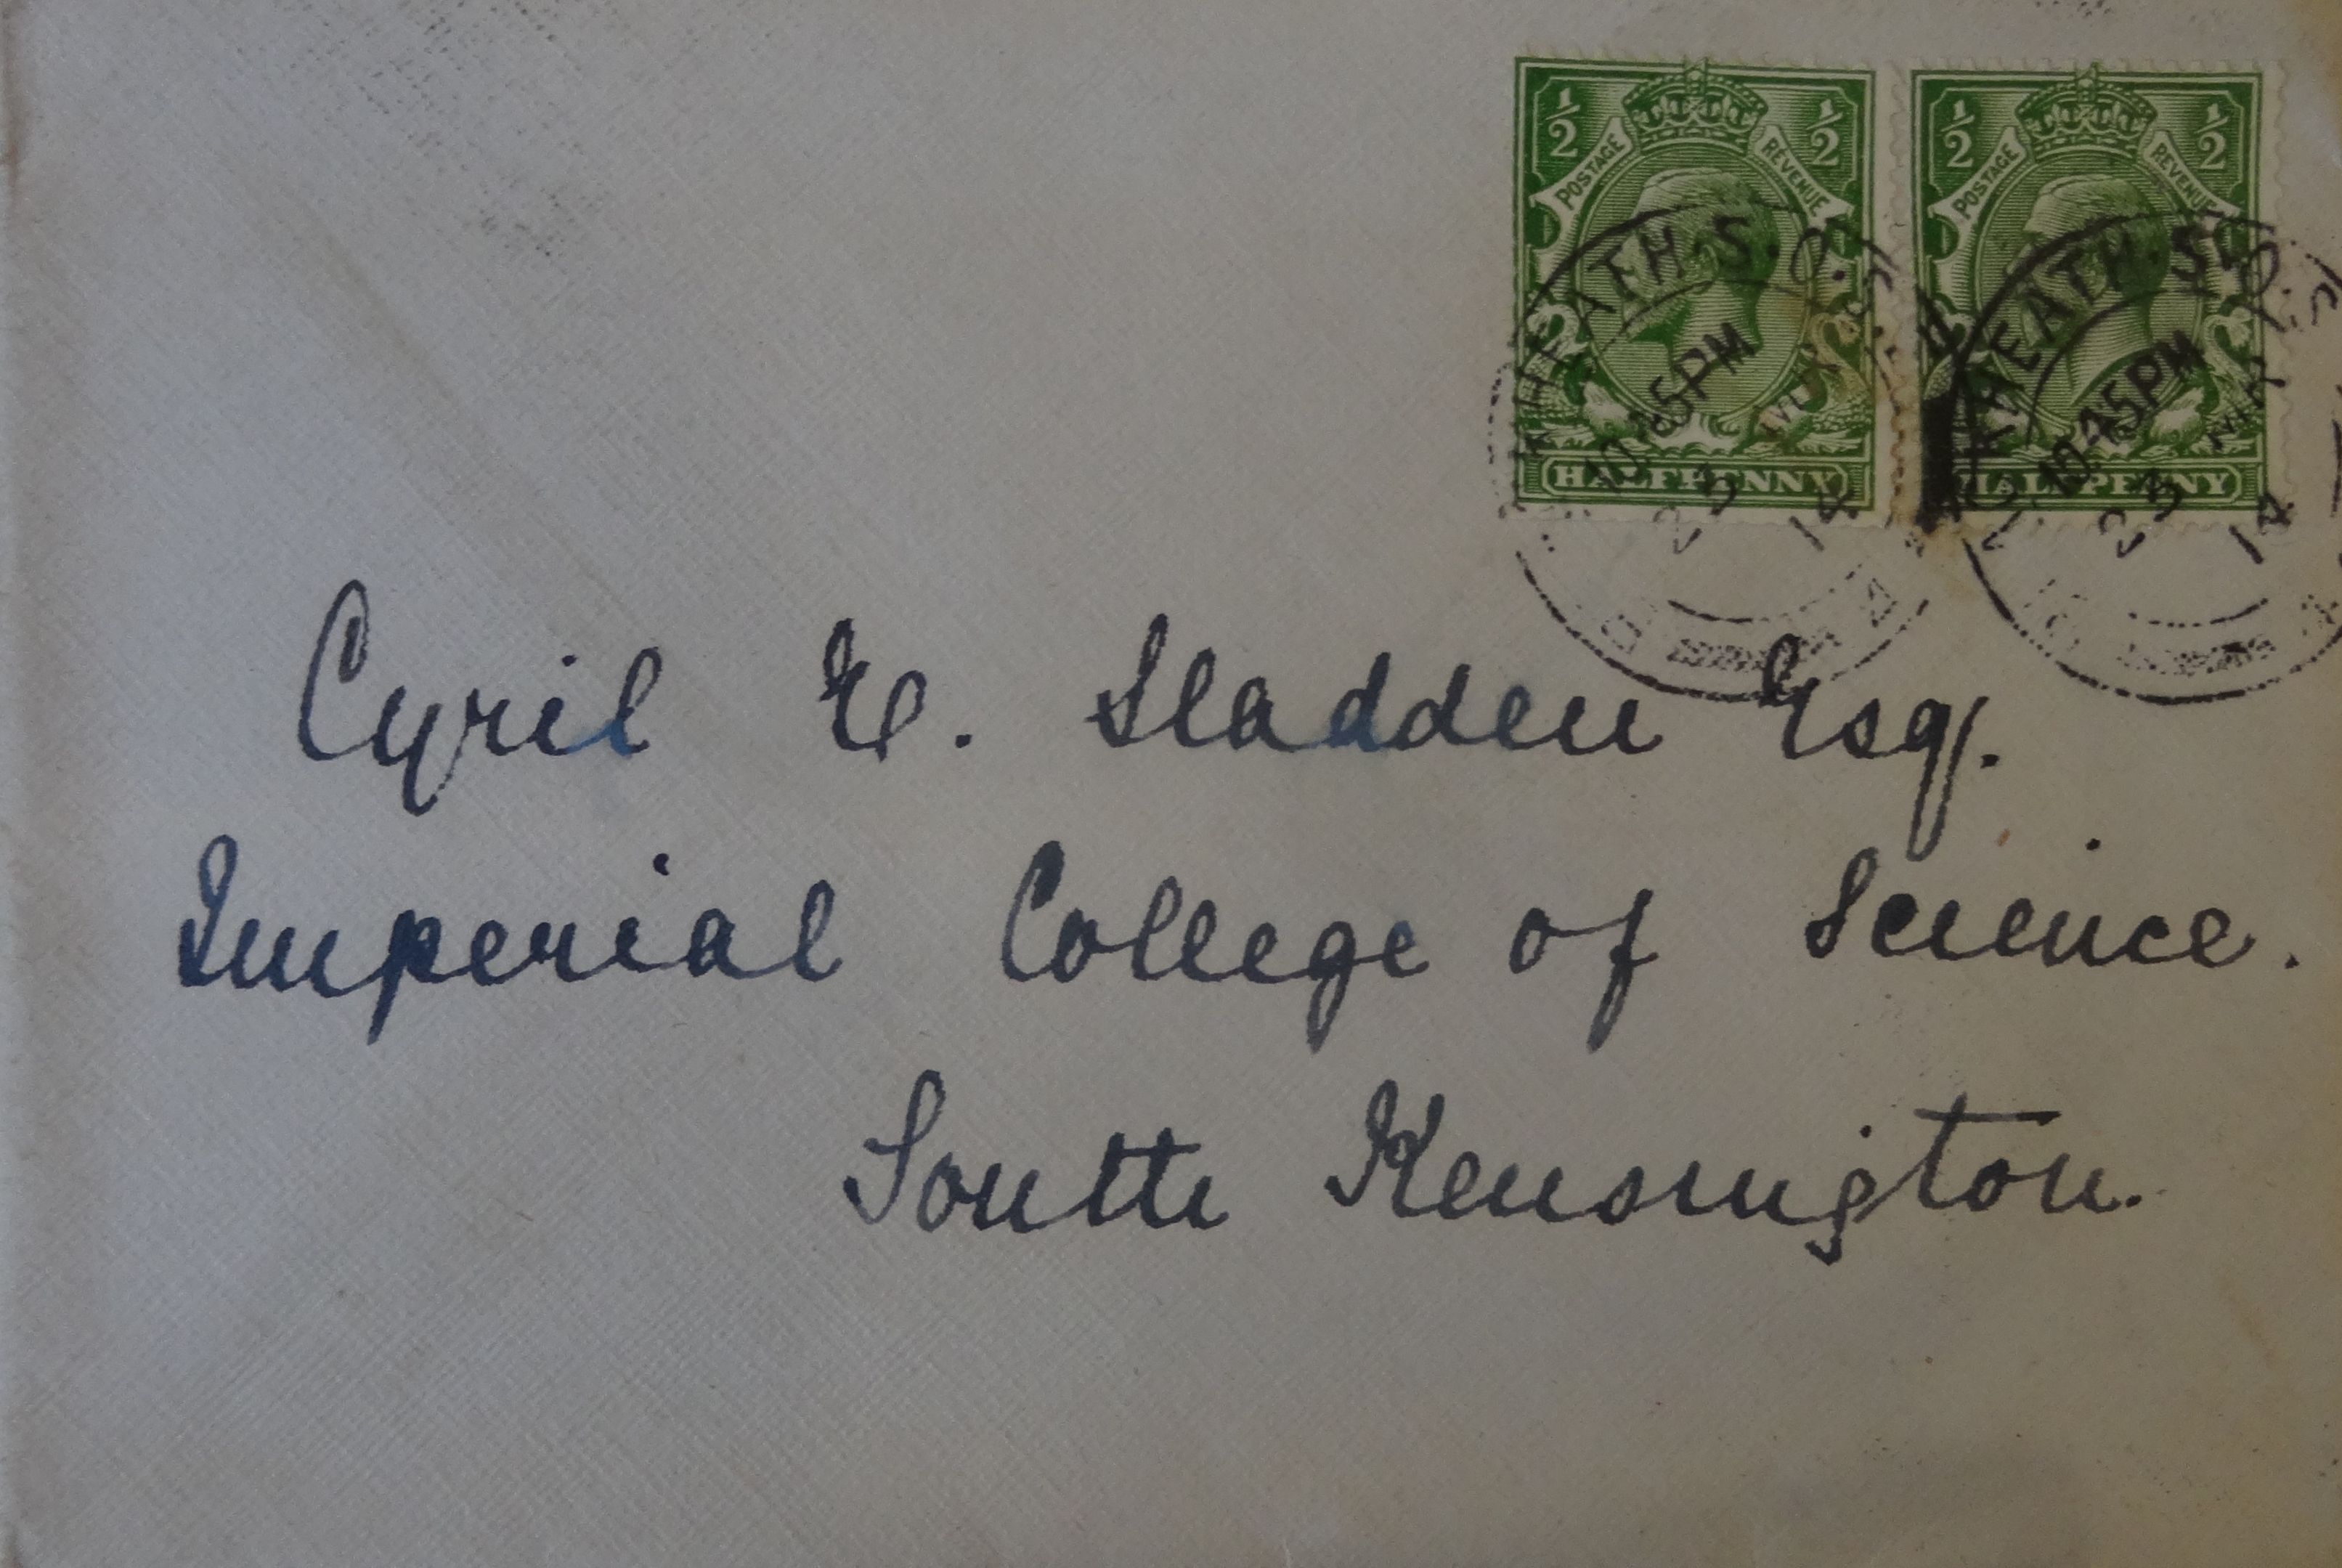 ½ POSTAGE REVENUE ½
HALFPENNY
½ POSTAGE REVENUE ½
HALFPENNY
HEATH. S.O.
10.45PM
23 MR 14
HEATH. S.O.
10.45PM
23 MR 14
Cyril E. Sladden Esq.
Imperial College of Science.
South Kensington.